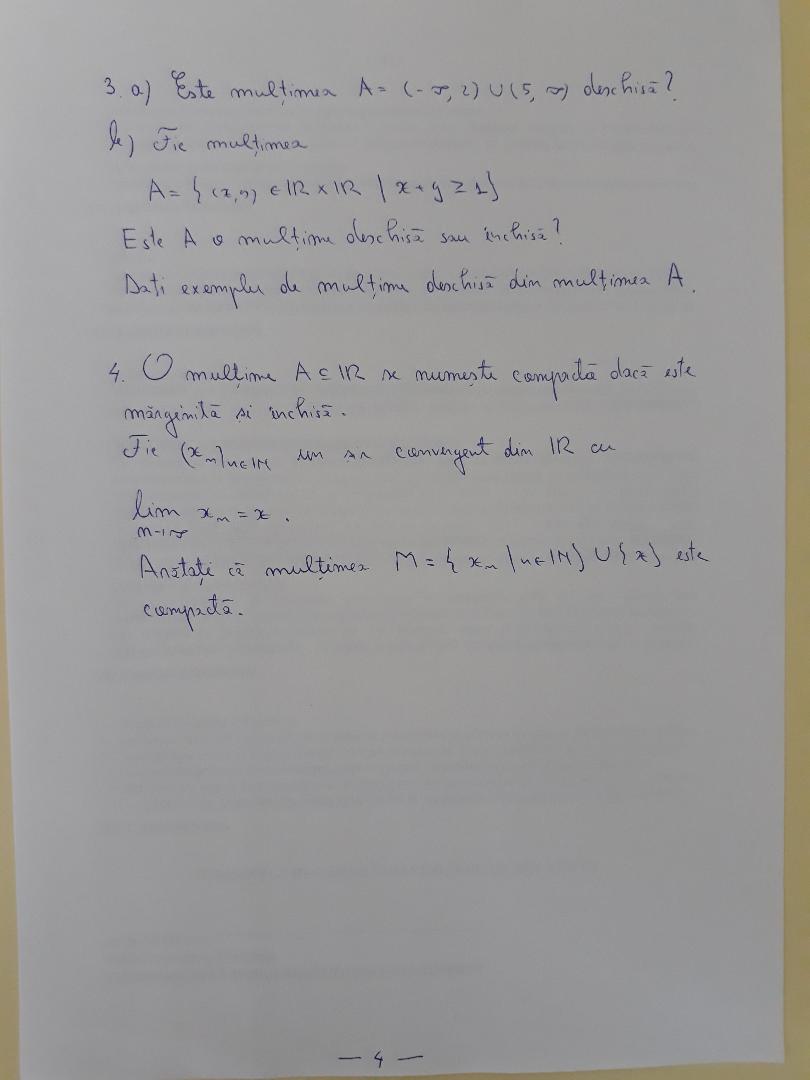 3. a) Este mulțimea A = (-∞, 2) ∪ (5, ∞) deschisă?
b) Fie mulțimea
A = { (x,y) ∈ ℝ × ℝ | x + y ≥ 1}
Este A o mulțime deschisă sau închisă?
Dați exemplu de mulțime deschisă din mulțimea A.
4. O mulțime A ⊆ ℝ se numește compactă dacă este
mărginită și închisă.
Fie (xₙ)n∈ℕ un șir convergent din ℝ cu
lim xₙ = x.
n→∞
Arătați că mulțimea M = { xₙ | n∈ℕ} ∪ {x} este
compactă.
— 4 —